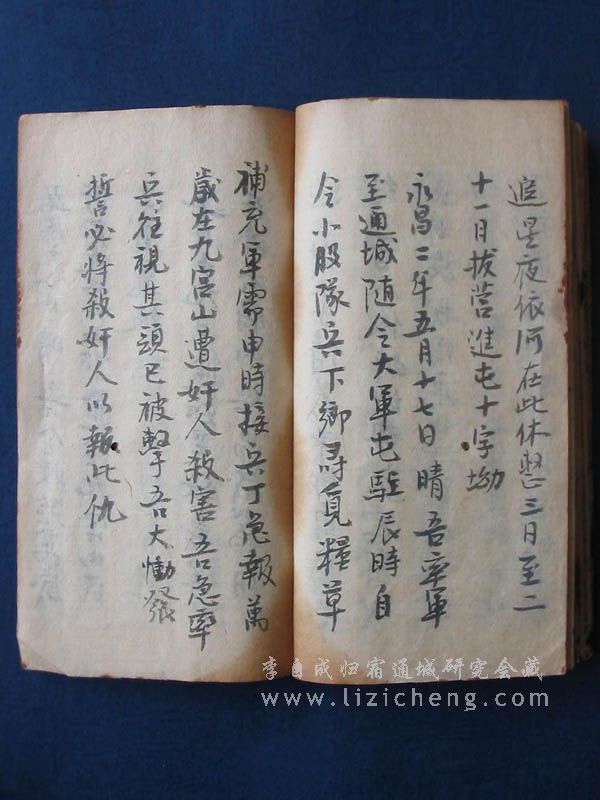 追星夜依河在此休整三日至二
十一日拔营進屯十字坳
永昌二年五月十七日晴吾率軍
至通城随令大軍屯駐辰時自
令小股隊兵下鄉尋覓糧草
補充軍需申時接兵丁急報萬
歲在九宫山遭奸人殺害吾急率
兵往視其頭已被擊吾大慟發
誓必将殺奸人以報此仇
李自成归宿通城研究会藏
www.lizicheng.com